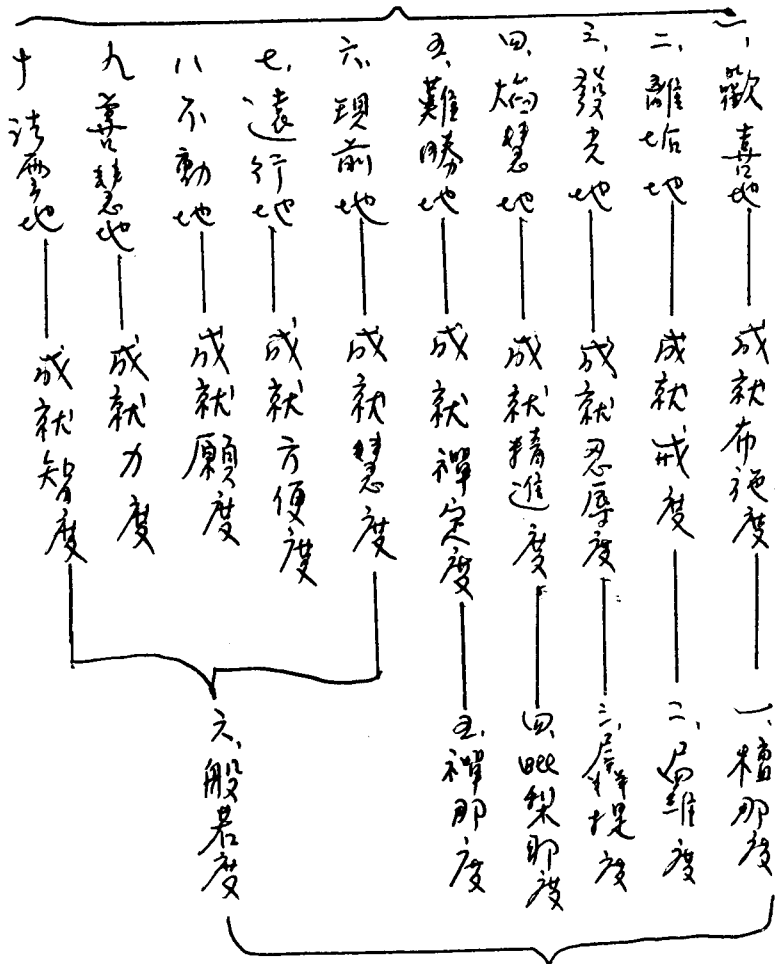 一、歡喜地——成就布施度——一、檀那度
二、離垢地——成就戒度——二、尸羅度
三、發光地——成就忍辱度——三、羼提度
四、焰慧地——成就精進度——四、毗梨耶度
五、難勝地——成就禪定度——五、禪那度
六、現前地——成就慧度
七、遠行地——成就方便度
八不動地——成就願度
九善慧地——成就力度
十法雲地——成就智度
六、般若度